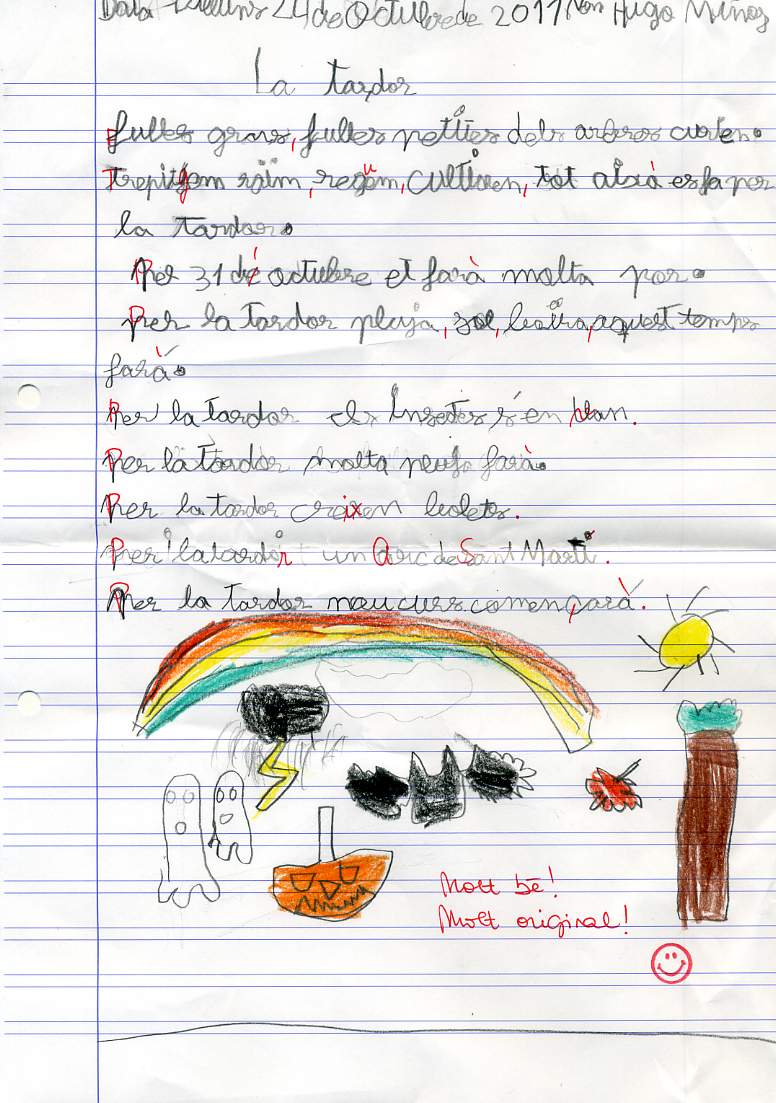 Data Dilluns 24 de Octubre de 2011 Nom Hugo Muñoz
La tardor
Fulles grans, fulles petites dels arbres cuen.
Trepitgem raïm, reguem, cultiven, tot aixó es fa per
la tardor.
Per 31 de octubre et farà molta por.
Per la tardor pluja, sol, boira, aquest temps
farà.
Per la tardor els Insectes s'en van.
Per la tardor molta neu farà.
Per la tardor creixen bolets.
Per la tardor un Arc de Sant Martí.
Per la tardor nou curs començarà.
Molt bé!
Molt original!